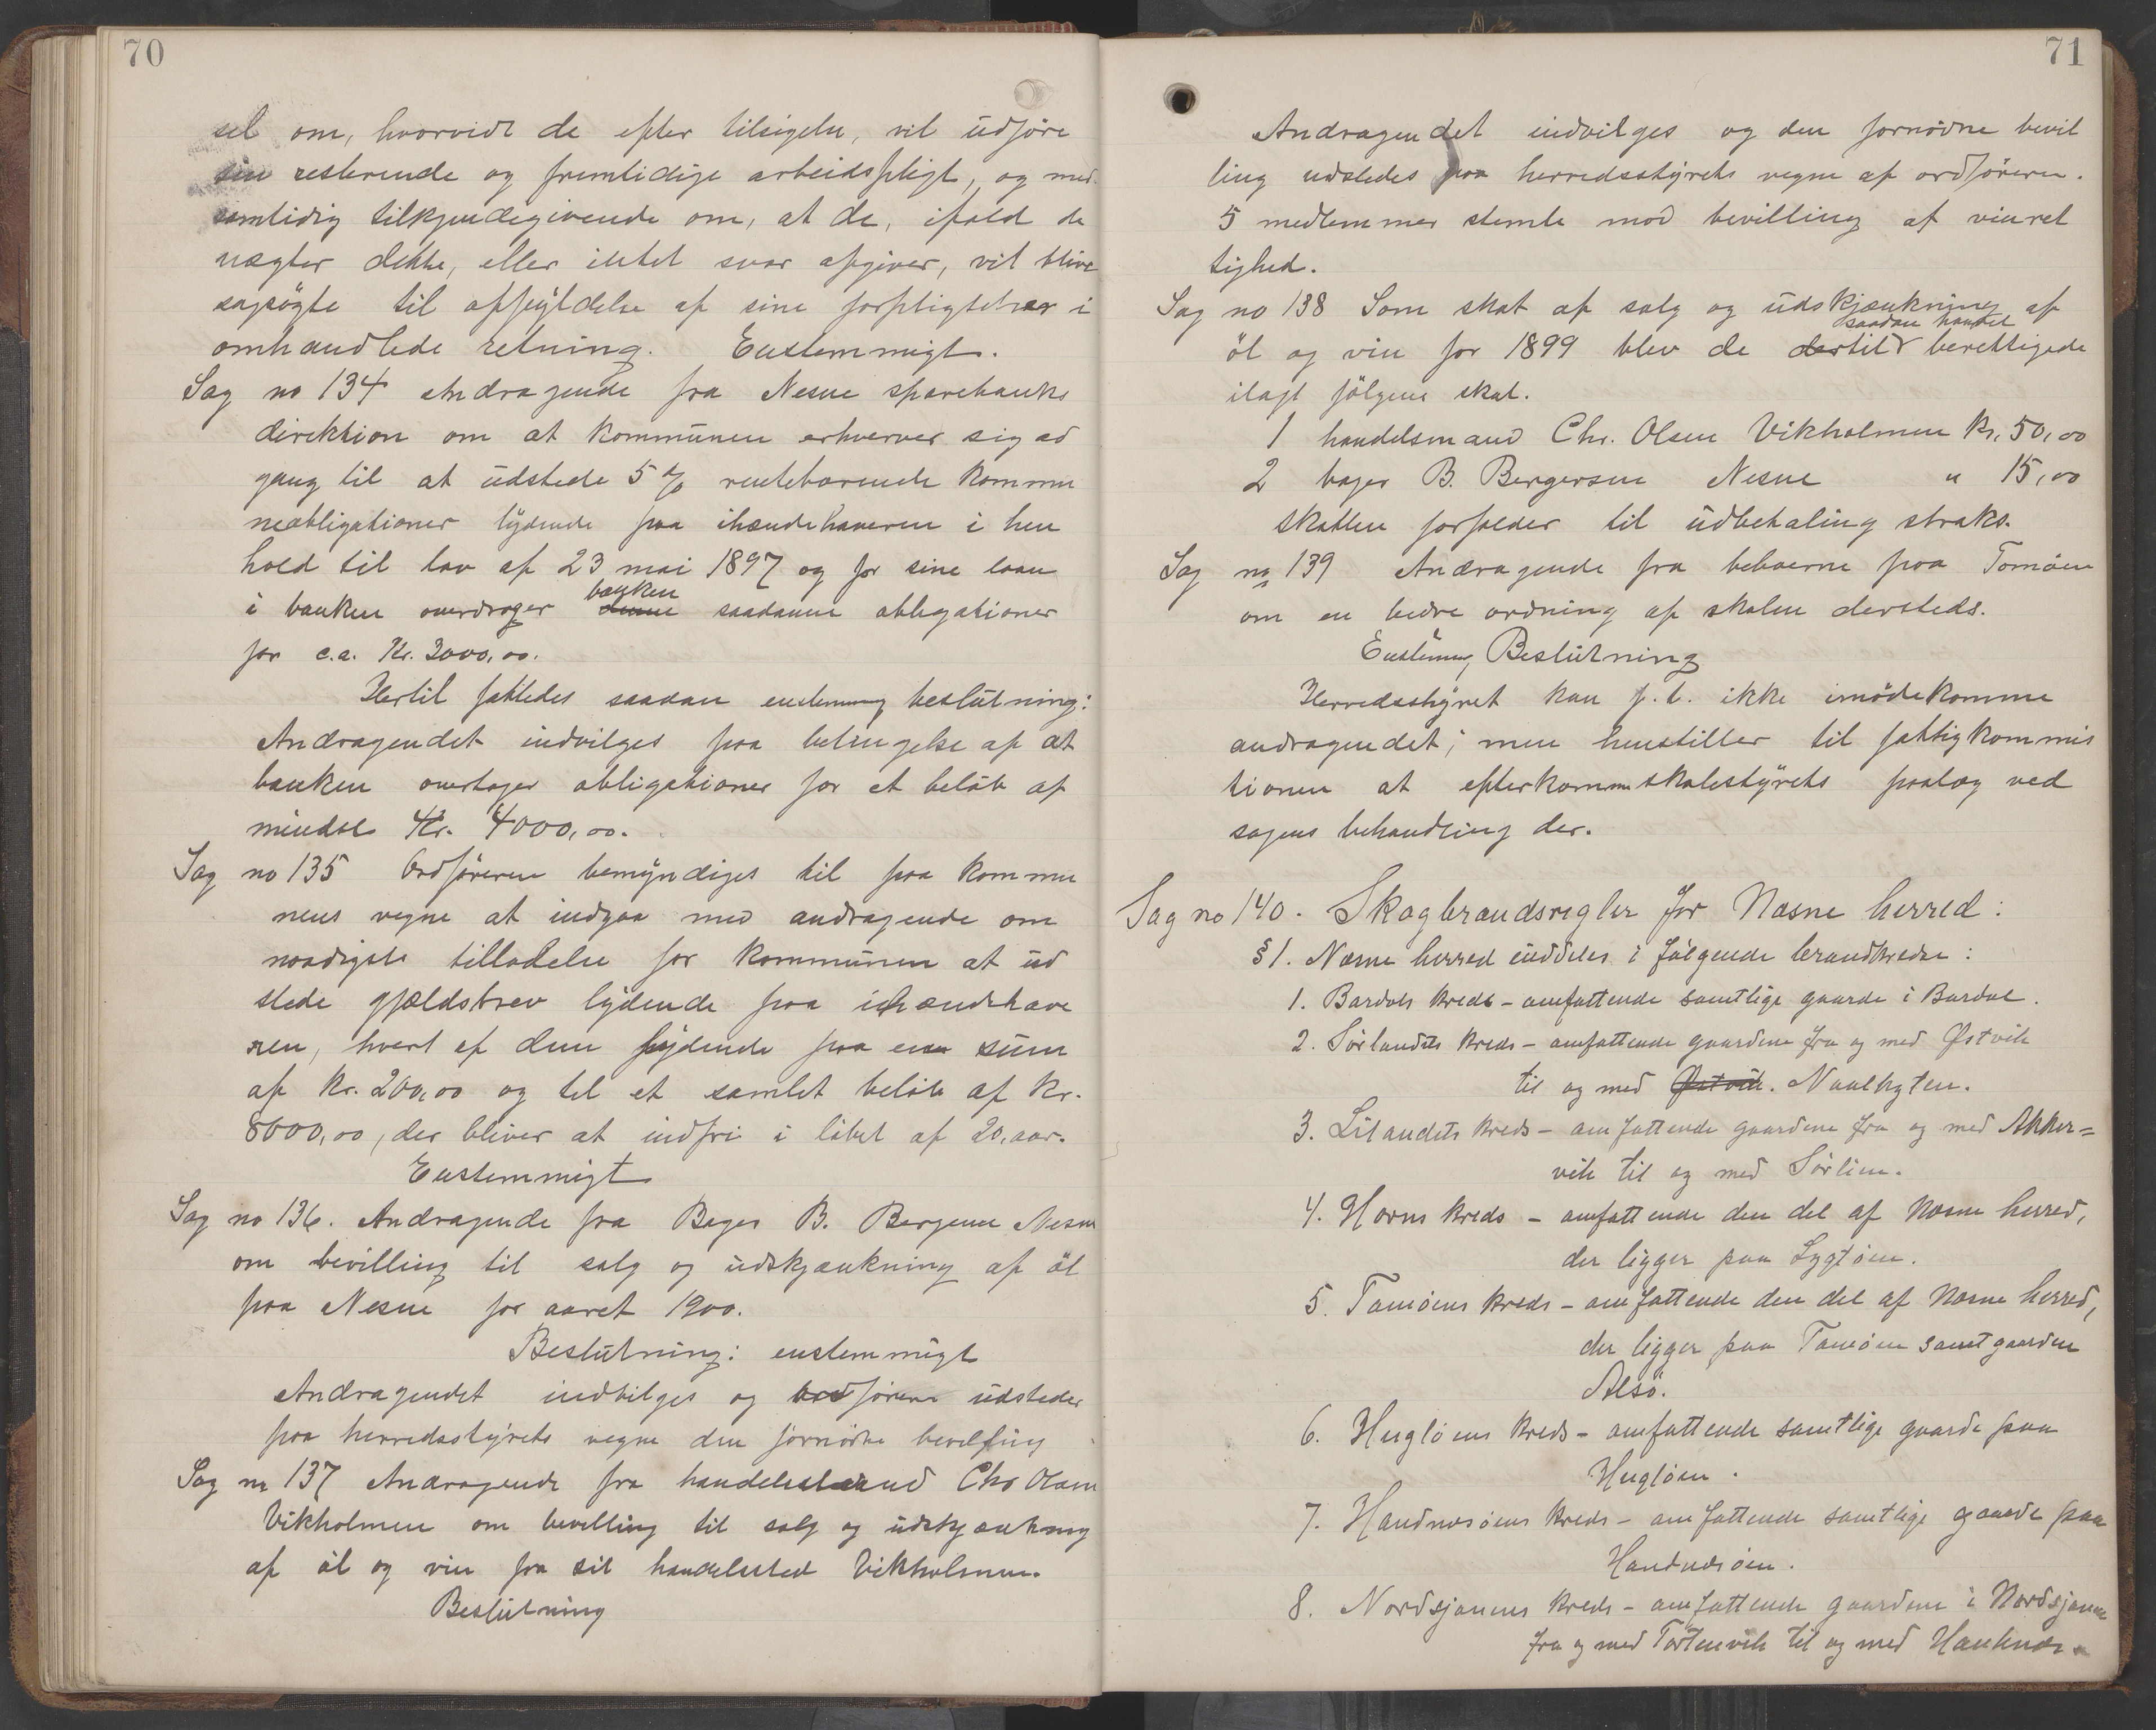 70
sel om, hvorvidt de efter tilsigelse, vil udføre
sin resterende og fremtidige arbeidspligt, og med
samtidig tilkjendegivende om, at de, ifald de
nægter dette, eller intet svar afgiver, vil blive
sagsögte til opfyldelse af sine forpligtelser i
omhandlede retning. Enstemmigt.
Sag no 134 Andragende fra Nesne sparebanks
direktion om at kommunen erhverver sig ad
gang til at udstede 5 % rentebærende kommu
neobligationer lydende paa ihændehaveren i hen
hold til lov af 23 mai 1897 og for sine laan
i banken overdrager banken saadanne obligationer
for c.a. Kr. 3000,00.
Hertil fattedes saadan enstemmig beslutning:
Andragendet indvilges paa betingelse af at
banken overtager obligationer for et beløb af
mindst Kr. 4000,00.
Sag no 135 Ordføreren bemyndiges til paa kommu
nens vegne at indgaa med andragende om
naadigste tilladelse for kommunen at ud
stede gjældsbrev lydende paa ihændehave
ren, hvert af dem lydende paa en sum
af Kr. 200,00 og til et samlet beløb af Kr.
8000,00, der bliver at indfri i løbet af 20, aar.
Enstemmigt
Sag no 136. Andragende fra Bager B. Bergersen Nesne
om bevilling til salg og udskjænkning af øl
paa Nesne for aaret 1900.
Beslutning: enstemmigt
Andragendet indvilges og ordføreren udsteder
paa herredsstyrets vegne den fornødne bevilling
Sag no 137 Andragende fra handelsmand Chr Olsen
Vikholmen om bevilling til salg og udskjænkning
af øl og vin fra sit handelssted Vikholmen.
Beslutning
71
Andragendet indvilges og den fornødne bevil
ling udstedes paa herredsstyrets vegne af ordføreren.
5 medlemmer stemte mod bevilling af vinret
tighed.
Sag no 138 Som skat af salg og udskjænkning af
øl og vin for 1899 blev de dertil saadan handel berettigede
ilagt følgene skat.
1 handelsmand Chr. Olsen Vikholmen Kr. 50,00
2 bager B. Bergersen Nesne " 15,00
Skatten forfalder til udbetaling straks.
Sag no 139 Andragende fra beboerne paa Tomøen
om en bedre ordning af skolen dersteds.
Enstemmig Beslutning
Herredsstyret kan p.t. ikke imødekomme
andragendet; men henstiller til fattigkommis
sionen at efterkomme skolestyrets paalæg ved
sagens behandling der.
Sag no 140. Skogbrandsregler for Næsne herred:
§1. Næsne herred inddeles i følgende brandkredse:
1. Bardals kreds - omfattende samtlige gaarde i Bardal.
2. Sørlandets kreds - omfattende gaardene fra og med Østvik
til og med Østvik. Naalhyten.
3. Lilandets kreds - omfattende gaardene fra og med Akker=
vik til og med Sørlien.
4. Horns kreds - omfattende den del af Næsne herred,
der ligger paa Lygtøen.
5. Tomøens kreds - omfattende den del af Næsne herred,
der ligger paa Tomøen samt gaarden
Alsø.
6. Hugløens kreds - omfattende samtlige gaarde paa
Hugløen.
7. Handnesøens kreds - omfattende samtlige gaarde paa
Handnesøen.
8. Nordsjonens kreds - omfattende gaardene i Nordsjonen
fra og med Tortenvik til og med Hauknes.